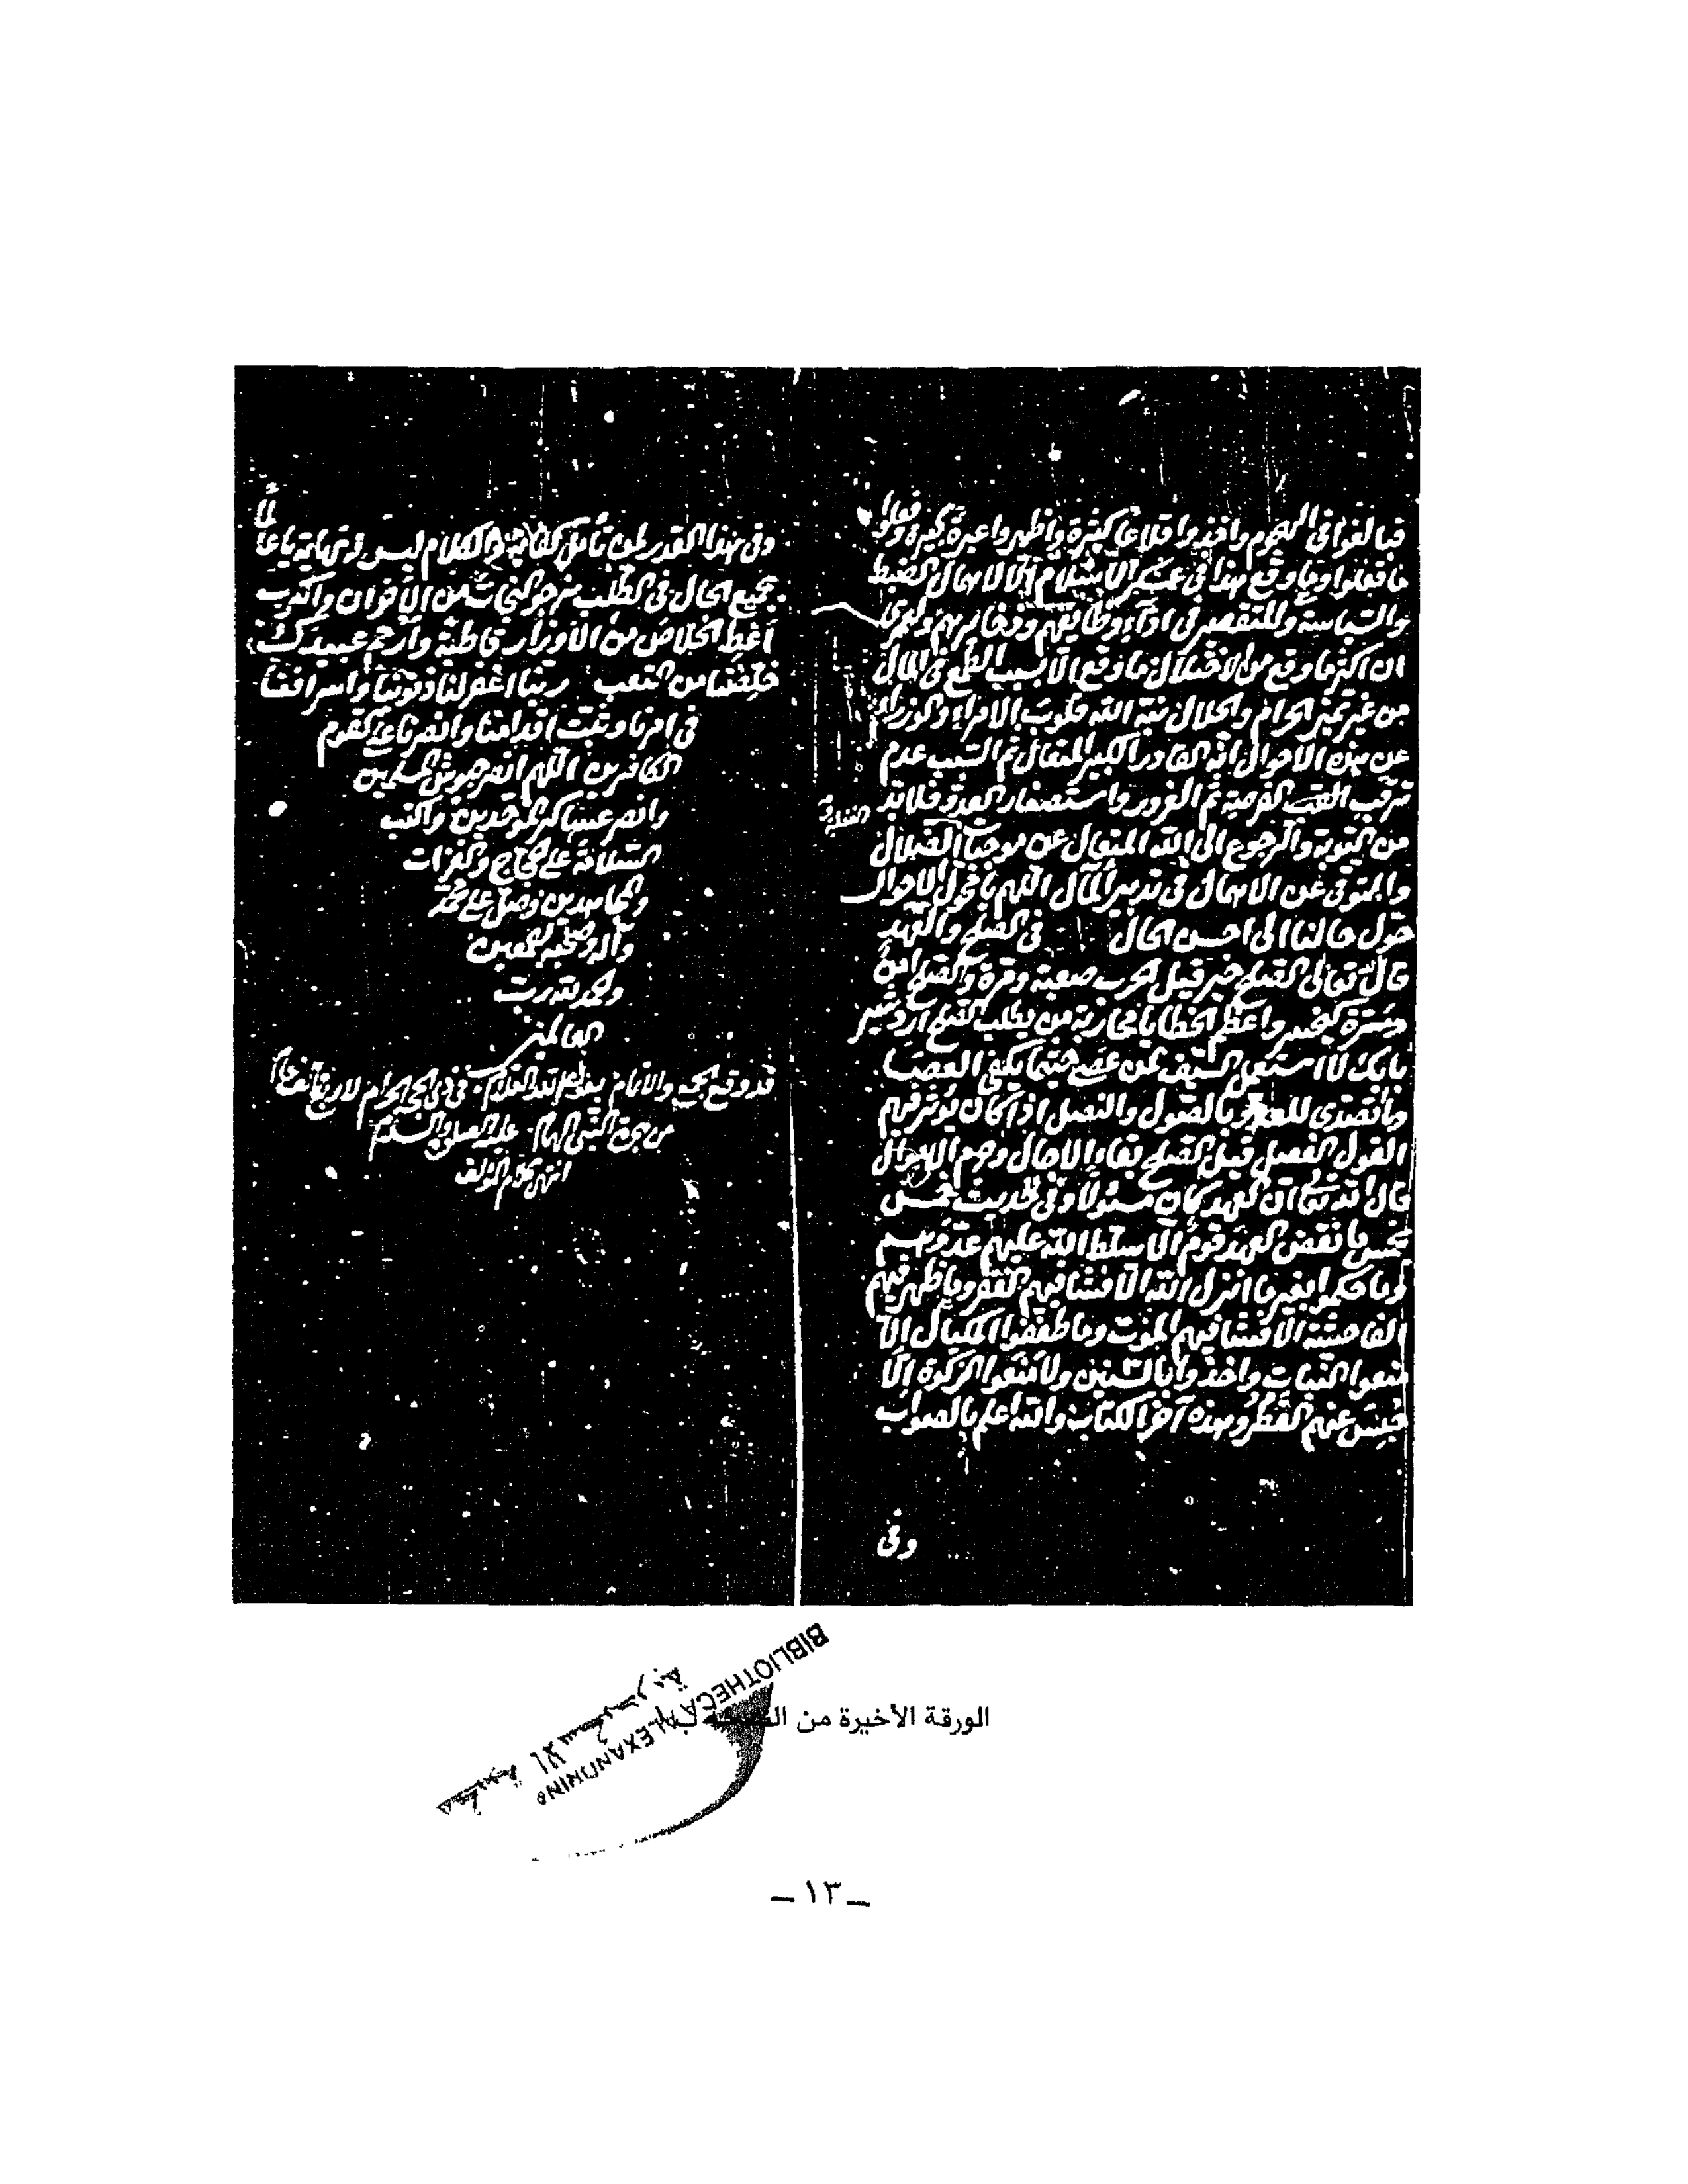 فبالغوا في الهجوم وافذوا قلاعا كثيرة واظهروا عبرة كبيرة وفعلوا
ما فعلوا وما وقع هذا في عسكر الاسلام الا لاهمال الضبط
والسياسة وللتقصير في ادآء وظايفهم
ان اكثر ما وقع من الاختلال ما وقع الا بسبب الطمع في المال
من غير تميز الحرام والحلال نبه الله قلوب الامراء والوزراء
عن هذه الاحوال انه القادر الكبير المتعال ثم السبب عدم
ترقب الفرصة ثم الغرور واستصغار العدو فلا بد
من التوبة والرجوع الى الله المتعال عن موجبات الضلال
والتوقي عن الاهمال في تدبير المآل اللهم يا محول الاحوال
حول حالنا الى احسن الحال في الصلح والعهد
قال تعالى الصلح خير قيل الحرب صعبة ومرة والصلح امن
ومسرة واعظم الخطايا محاربة من يطلب الصلح اردشير
بابك لا استعمل السيف لمن عصى حيثما يكفي العصا
وما نقصدى للعدو بالصول والنصل اذا كان يؤثر فيهم
القول الفصل قيل الصلح بقاء الاجال
قال الله تعالى ان العهد كان مسئولا وفي الحديث خمس
بخمس ما نقض العهد قوم الا سلط الله عليهم عدوهم
وما حكموا بغير ما انزل الله الا فشا فيهم الفقر وما ظهر فيهم
الفاحشة الا فشا فيهم الموت وما طففوا المكيال الا
منعوا النبات واخذوا بالسنين ولا منعوا الزكوة الا
حبس عنهم القطر وهذه آخر الكتاب والله اعلم بالصواب
وفي
وفي هذا القدر لمن تأمل كفاية والكلام ليس
جميع الحال في الطلب نرجو النجات من الاقران والكرب
اعط الخلاص من الاوزار قاطبة وارحم عبيدك
من التعب ربنا اغفر لنا ذنوبنا واسرافنا
في امرنا وثبت اقدامنا وانصرنا على القوم
الكافرين اللهم انصر جيوش المسلمين
وانصر عساكر الموحدين واكتب
السلامة على الحجاج والغزات
والمجاهدين وصل على محمد
وآله وصحبه اجمعين
والحمد لله رب
العالمين
قد وقع الجمع والاتمام في ذي الحجة الحرام
من هجرة النبي عليه الصلوة والسلام
انتهى كلام المؤلف
الورقة الأخيرة من
BIBLIOTHECA ALEXANDRINA
مكتبة الاسكندرية
– ١٣ –